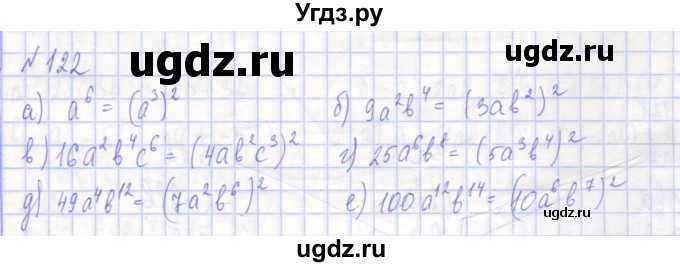 Угдз.ру
ugdz.ru
№122
а) a⁶ = (a³)² б) 9a²b⁴ = (3ab²)²
ugdz.ru
в) 16a²b⁴c⁶ = (4ab²c³)² г) 25a⁶b⁸ = (5a³b⁴)²
д) 49a⁴b¹² = (7a²b⁶)² е) 100a¹²b¹⁴ = (10a⁶b⁷)²
ugdz.ru
ugdz.ru
ugdz.ru